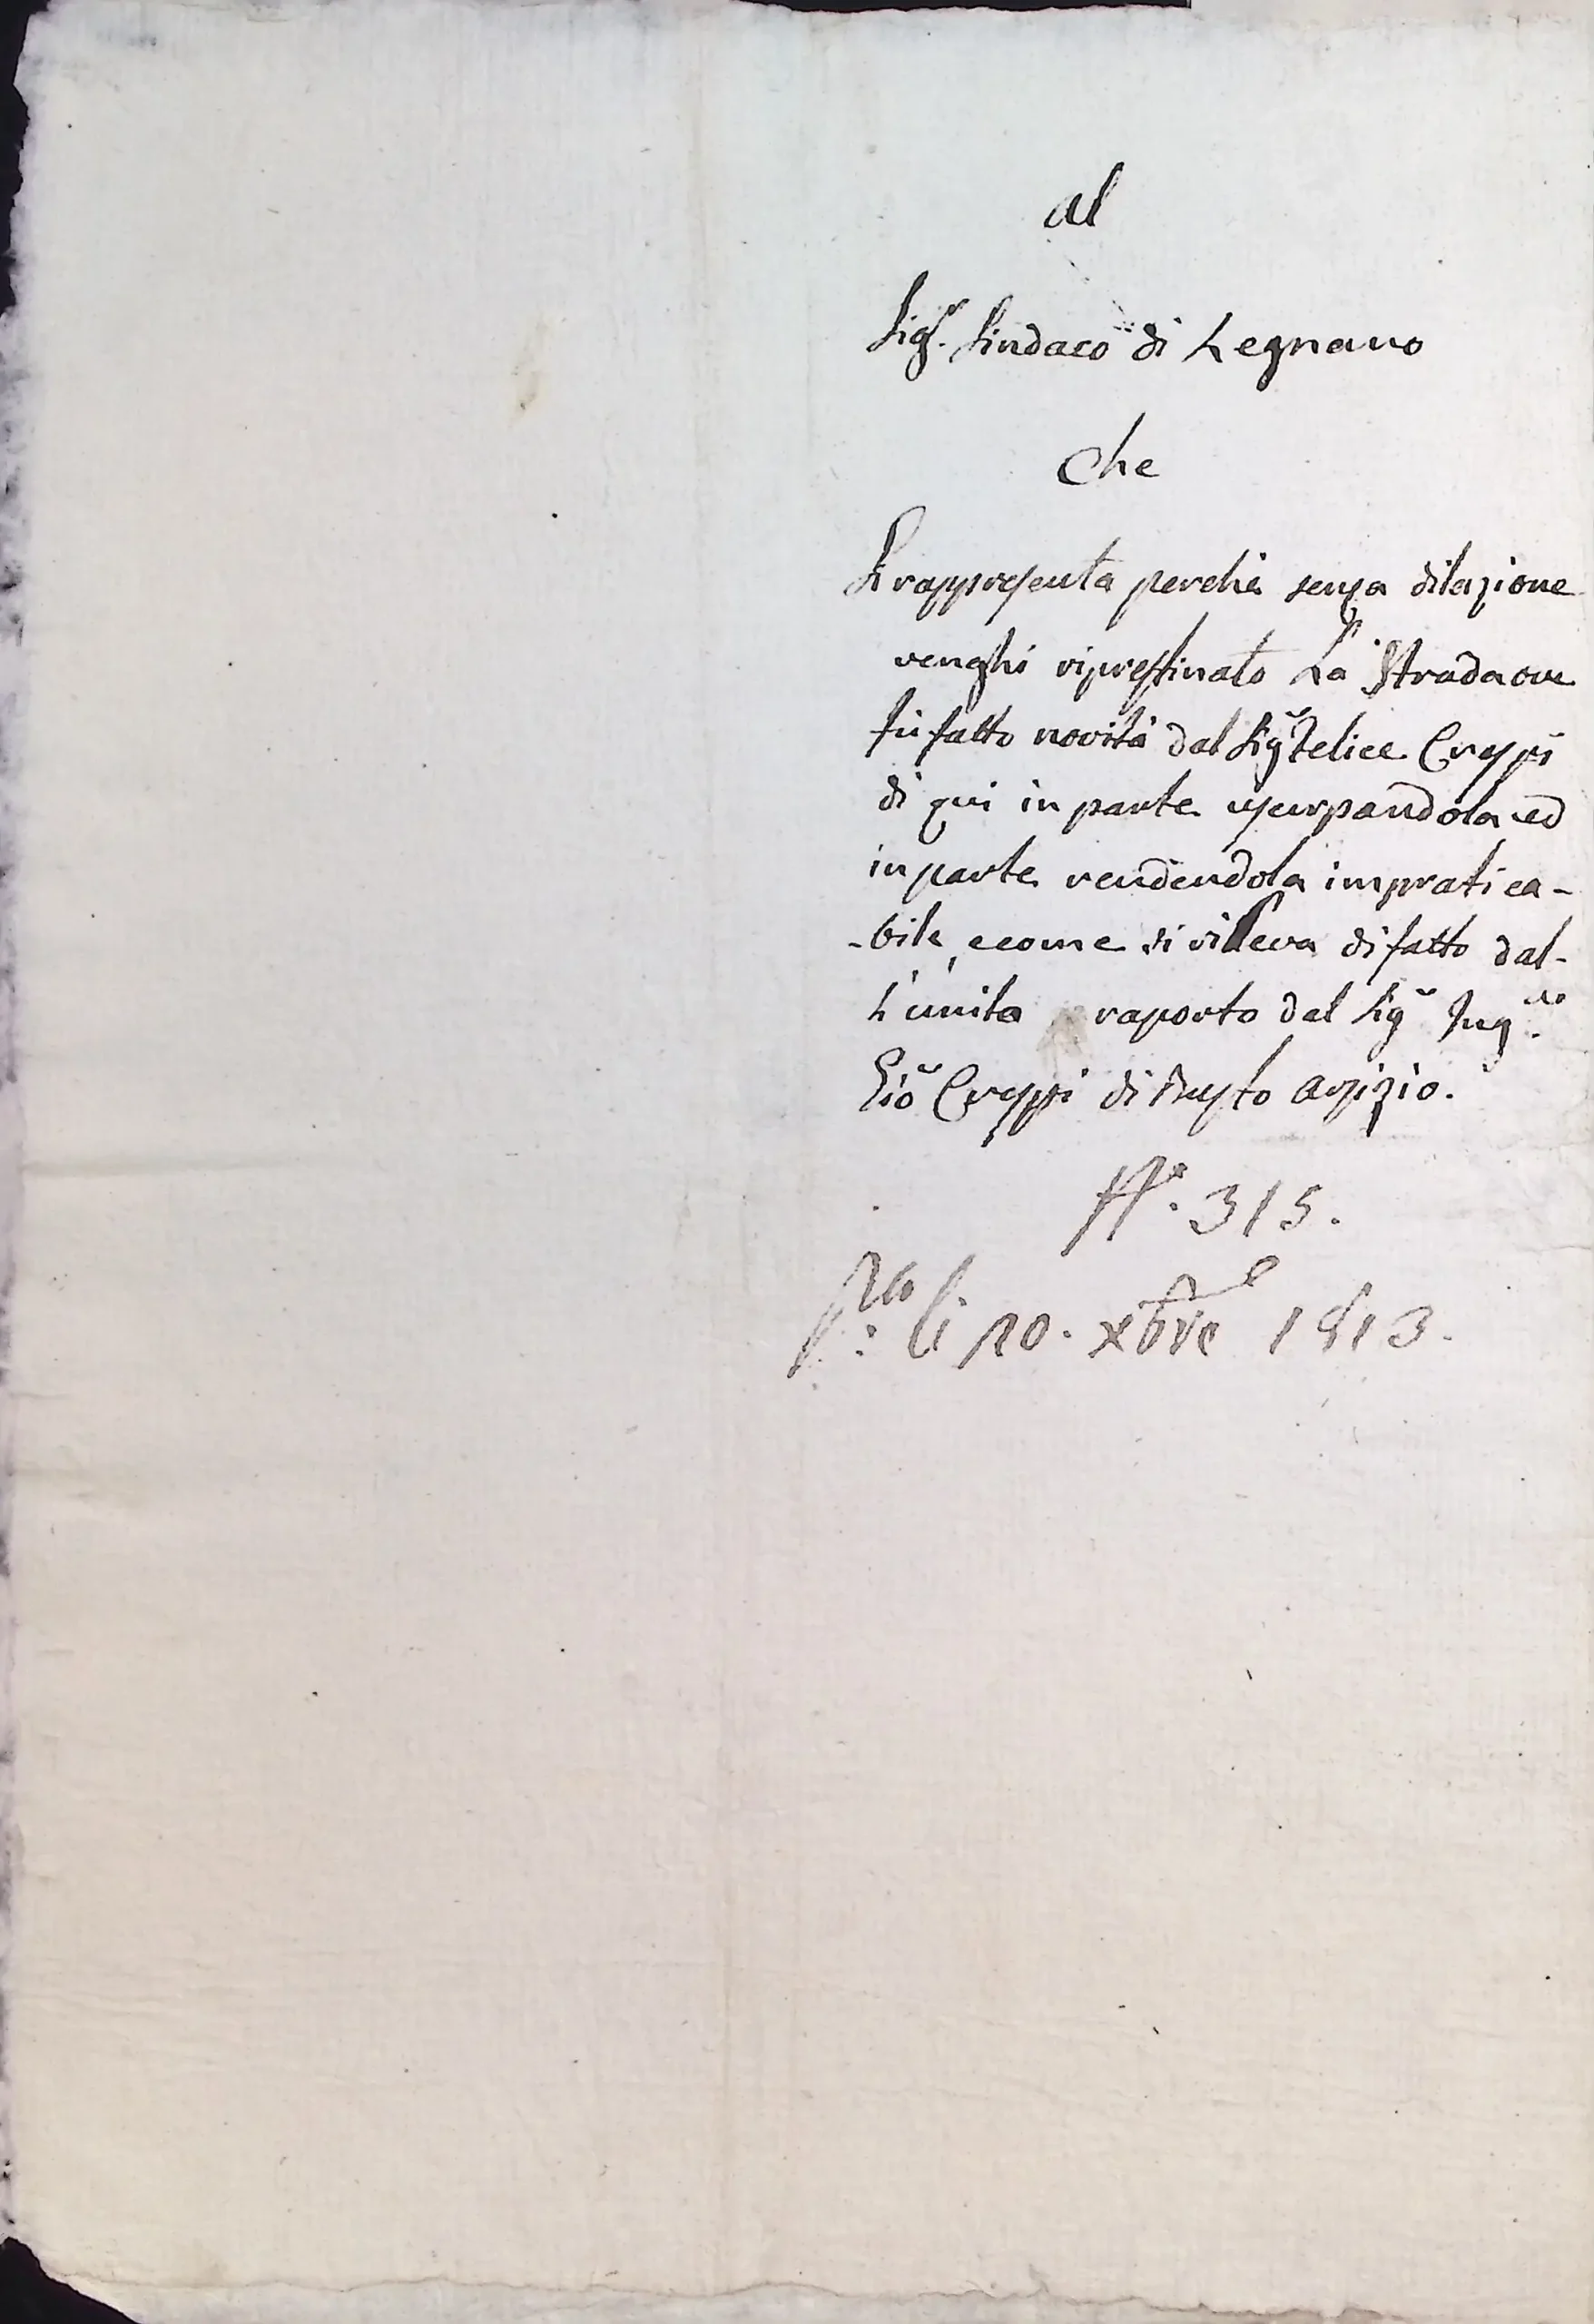 al
Sigr. Sindaco di Legnano
Che
Si rappresenta perchè senza dilazione
venghi ripristinato La Strada ove
fù fatto novità dal Sigr Felice Crespi
di qui in parte usurpandola ed
in parte rendendola impratica-
-bile, ecome si rileva di fatto dal-
L'unita raporto dal Sigr Ing.re
Gio Crespi di Busto Arsizio.
N°. 315.
P.to li 20. xbre 1813.